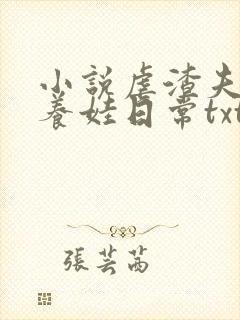 小說虐渣夫
養娃日常txt
張芸茜